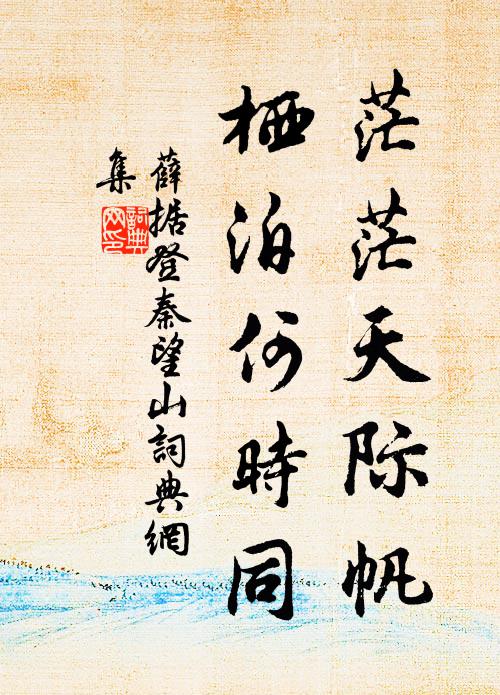 茫茫天际帆
栖泊何時同
薛据登秦望山詞典網
集
詞典
网印